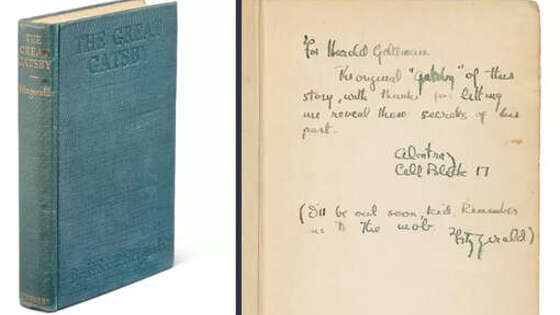 THE
GREAT
GATSBY
Fitzgerald
THE GREAT
GATSBY
For Harold Goldman
The original "Gatsby" of this
story, with thanks for letting
me reveal these secrets of his
past.
Alcatraz
Cell Block 17
(I'll be out soon, kid. Remember
me to the mob.
Fitzgerald)